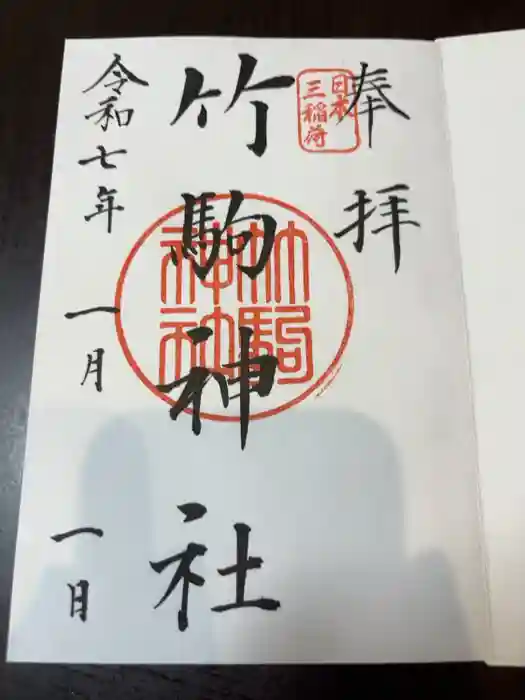 奉拝
日本
三稲荷
竹駒神社
竹駒
神社
令和七年
一月
一日